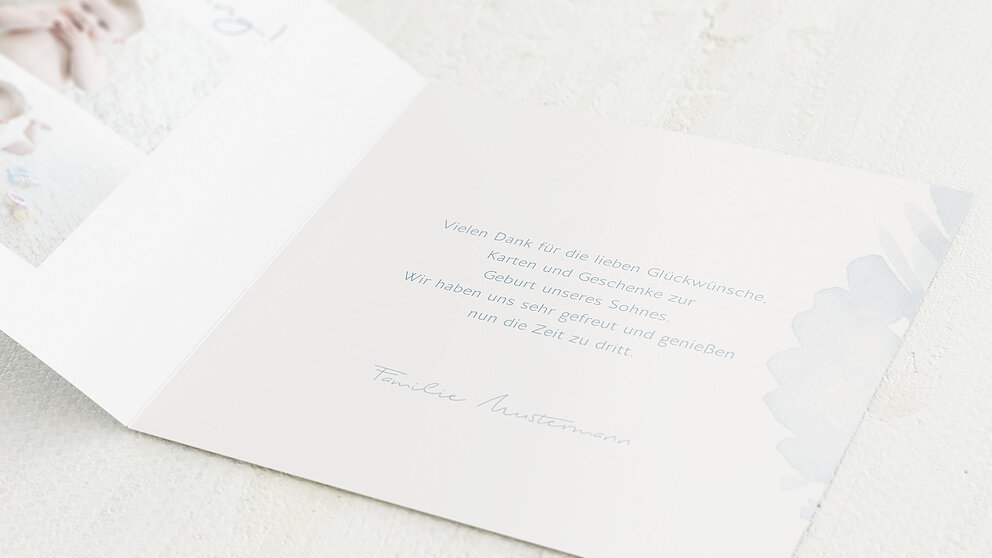 Vielen Dank für die lieben Glückwünsche,
Karten und Geschenke zur
Geburt unseres Sohnes.
Wir haben uns sehr gefreut und genießen
nun die Zeit zu dritt.
Familie Mustermann